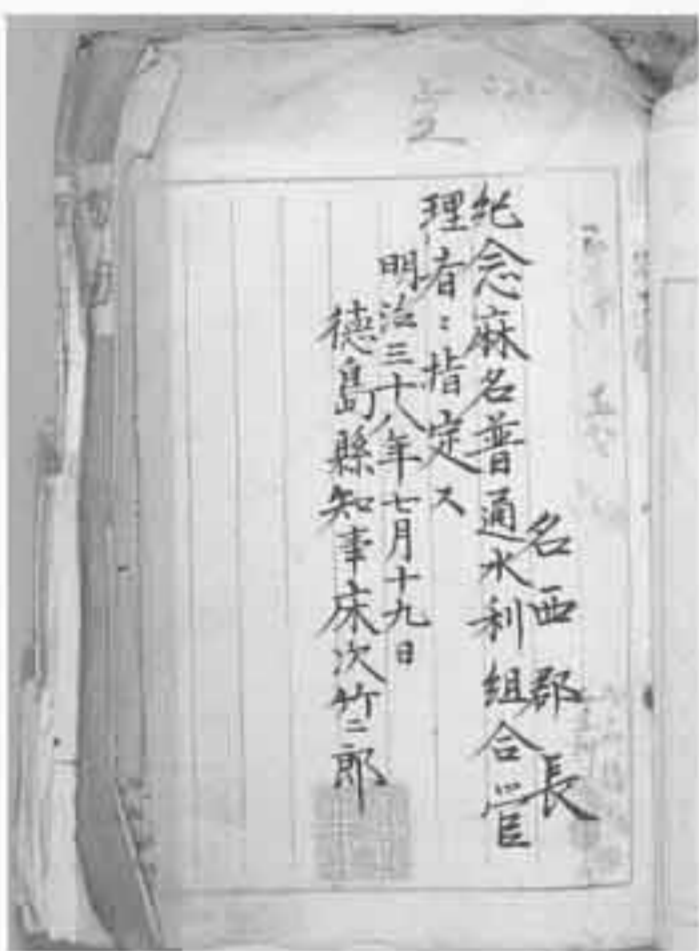 名西郡長
紀念麻名普通水利組合管
理者ニ指定ス
明治三十八年七月十九日
徳島縣知事床次竹二郎